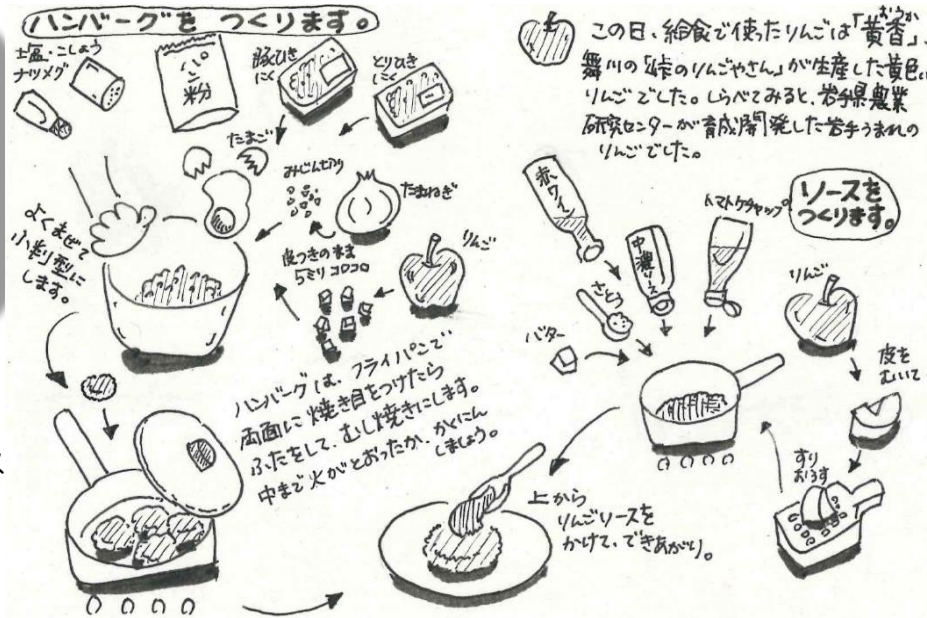 ハンバーグを つくります。
塩・こしょう
ナツメグ
パン粉
豚ひき
にく
とりひき
にく
たまご
みじん切り
たまねぎ
よくまぜて
小判型に
します。
皮つきのまま
5ミリコロコロ
りんご
ハンバーグは、フライパンで
両面に焼き目をつけたら
ふたをして、むし焼きにします。
中まで火がとおったか、かくにん
しましょう。
おうか
この日、給食で使ったりんごは「黄香」、
舞川の「峠のりんごやさん」が生産した黄色い
りんごでした。しらべてみると、岩手県農業
研究センターが育成開発した岩手うまれの
りんごでした。
ソースを
つくります。
赤ワイン
中濃ソース
トマトケチャップ
さとう
バター
りんご
皮を
むいて
すり
おろす
上から
りんごソースを
かけて、できあがり。